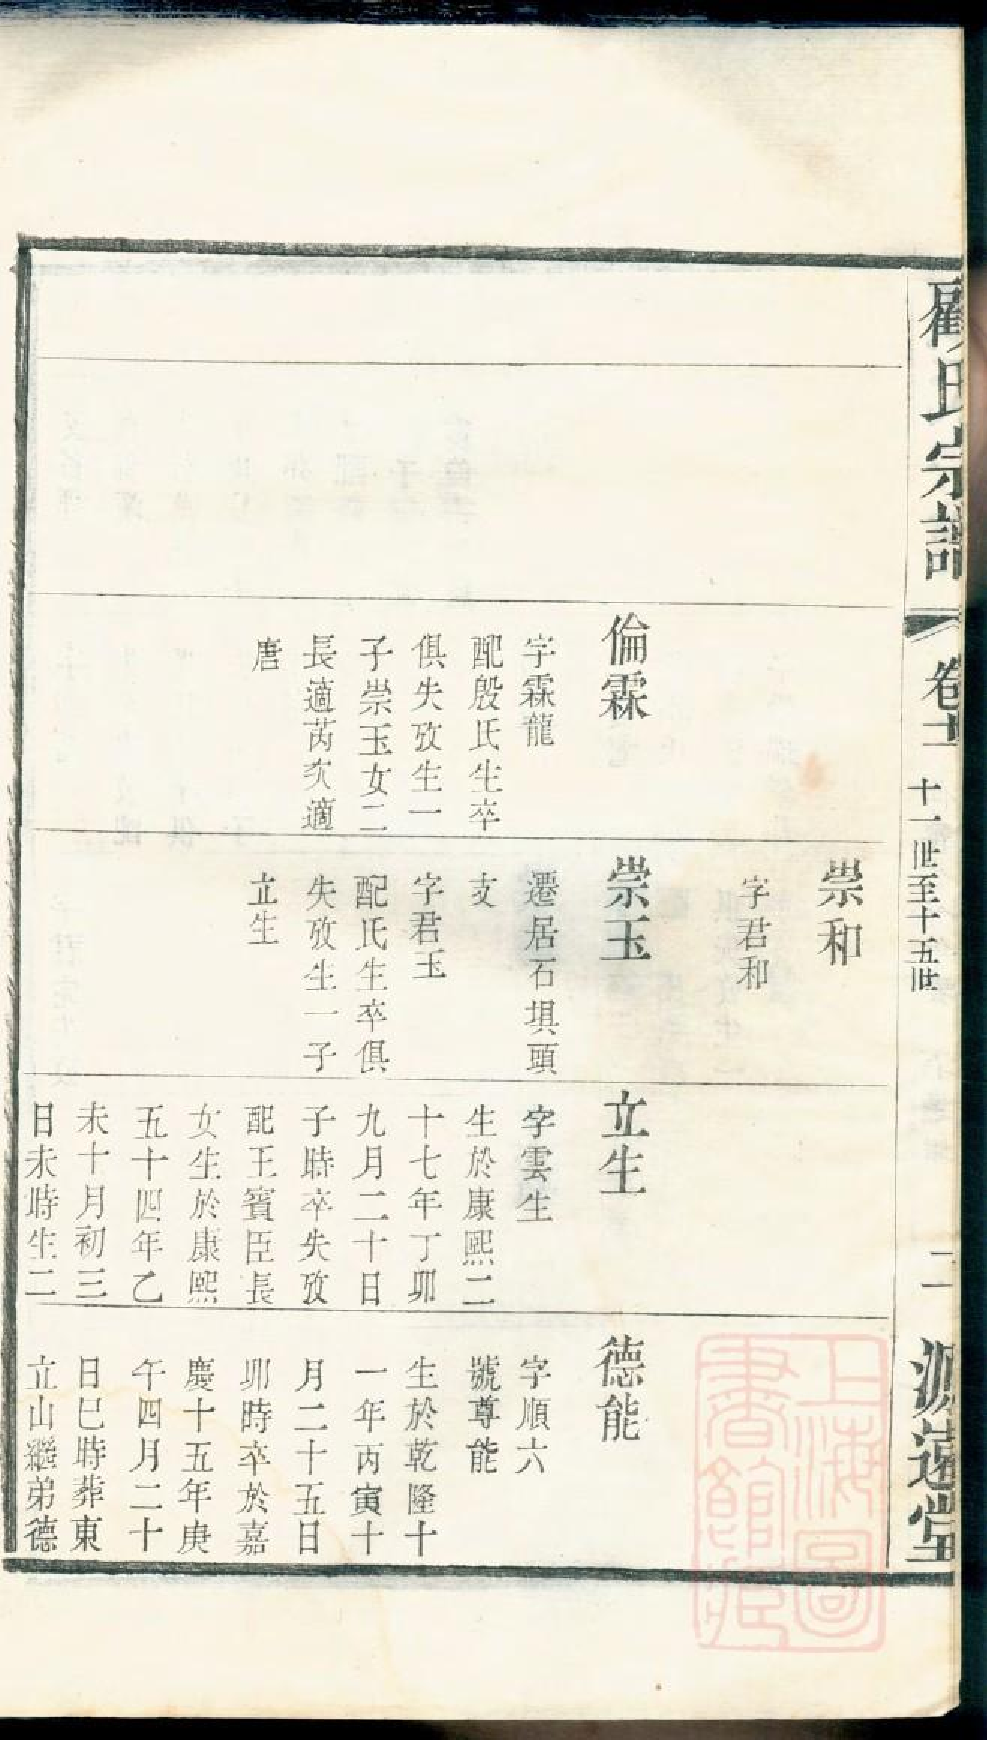 顧氏宗譜
卷十二
十一世至十五世
二
源遠堂
倫霖
字霖龍
配殷氏生卒
俱失攷生一
子崇玉女二
長適芮次適
唐
崇和
字君和
崇玉
遷居石埧頭
支
字君玉
配氏生卒俱
失攷生一子
立生
立生
字雲生
生於康熙二
十七年丁卯
九月二十日
子時卒失攷
配王賓臣長
女生於康熙
五十四年乙
未十月初三
日未時生二
德能
字順六
號尊能
生於乾隆十
一年丙寅十
月二十五日
卯時卒於嘉
慶十五年庚
午四月二十
日巳時葬東
立山繼弟德
上海圖書館藏